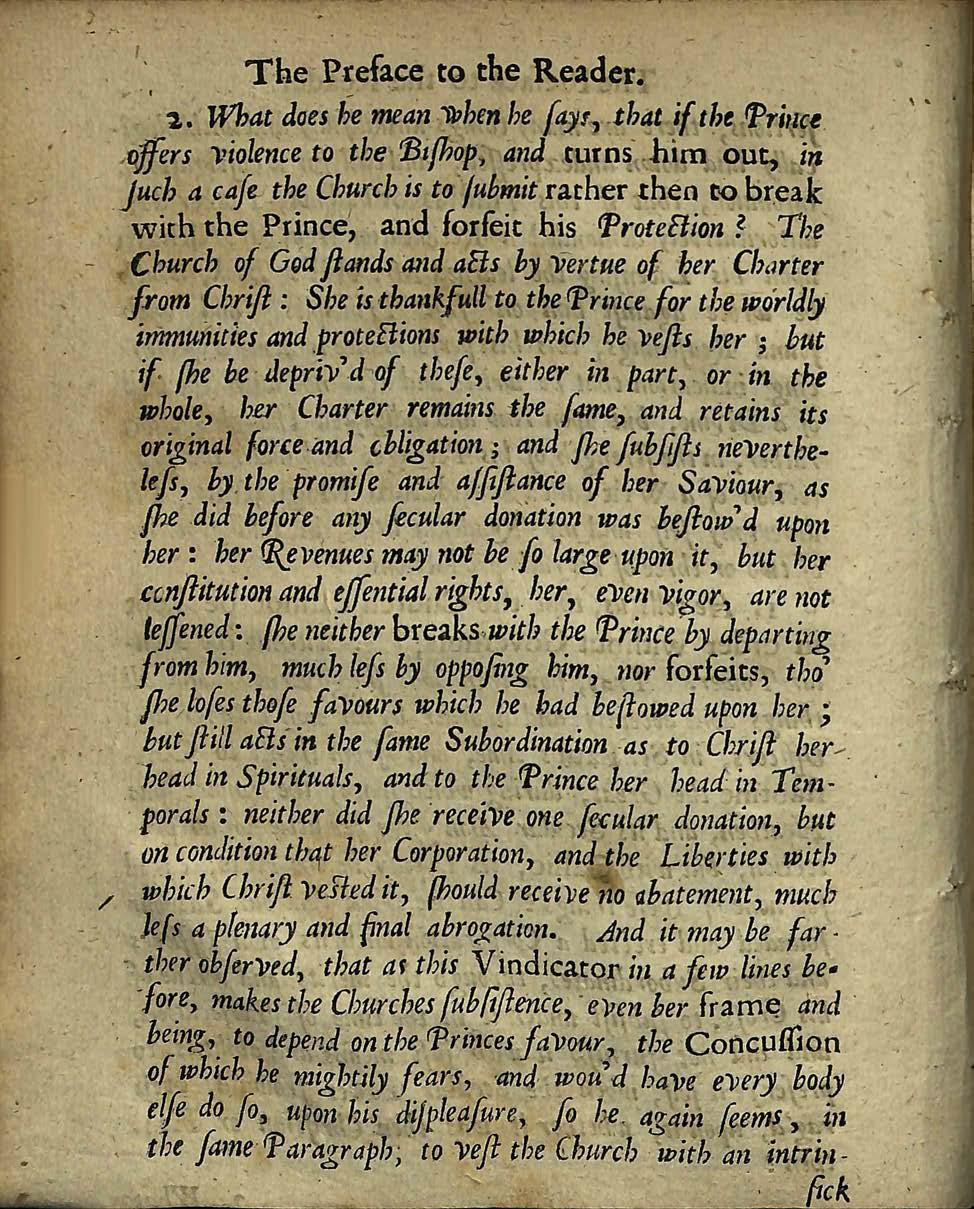 The Preface to the Reader.
2. What does he mean when he ſays, that if the Prince
offers violence to the Biſhop, and turns him out, in
ſuch a caſe the Church is to ſubmit rather then to break
with the Prince, and forfeit his Protection? The
Church of God ſtands and acts by vertue of her Charter
from Chriſt: She is thankfull to the Prince for the worldly
immunities and protections with which he veſts her; but
if ſhe be depriv'd of theſe, either in part, or in the
whole, her Charter remains the ſame, and retains its
original force and obligation; and ſhe ſubſiſts neverthe-
leſs, by the promiſe and aſſiſtance of her Saviour, as
ſhe did before any ſecular donation was beſtow'd upon
her: her Revenues may not be ſo large upon it, but her
conſtitution and eſſential rights, her, even vigor, are not
leſſened: ſhe neither breaks with the Prince by departing
from him, much leſs by oppoſing him, nor forfeits, tho'
ſhe loſes thoſe favours which he had beſtowed upon her;
but ſtill acts in the ſame Subordination as to Chriſt her
head in Spirituals, and to the Prince her head in Tem-
porals: neither did ſhe receive one ſecular donation, but
on condition that her Corporation, and the Liberties with
which Chriſt veſted it, ſhould receive no abatement, much
leſs a plenary and final abrogation. And it may be far-
ther obſerved, that as this Vindicator in a few lines be-
fore, makes the Churches ſubſiſtence, even her frame and
being, to depend on the Princes favour, the Concuſſion
of which he mightily fears, and wou'd have every body
elſe do ſo, upon his diſpleaſure, ſo he again ſeems, in
the ſame Paragraph, to veſt the Church with an intrin-
ſick